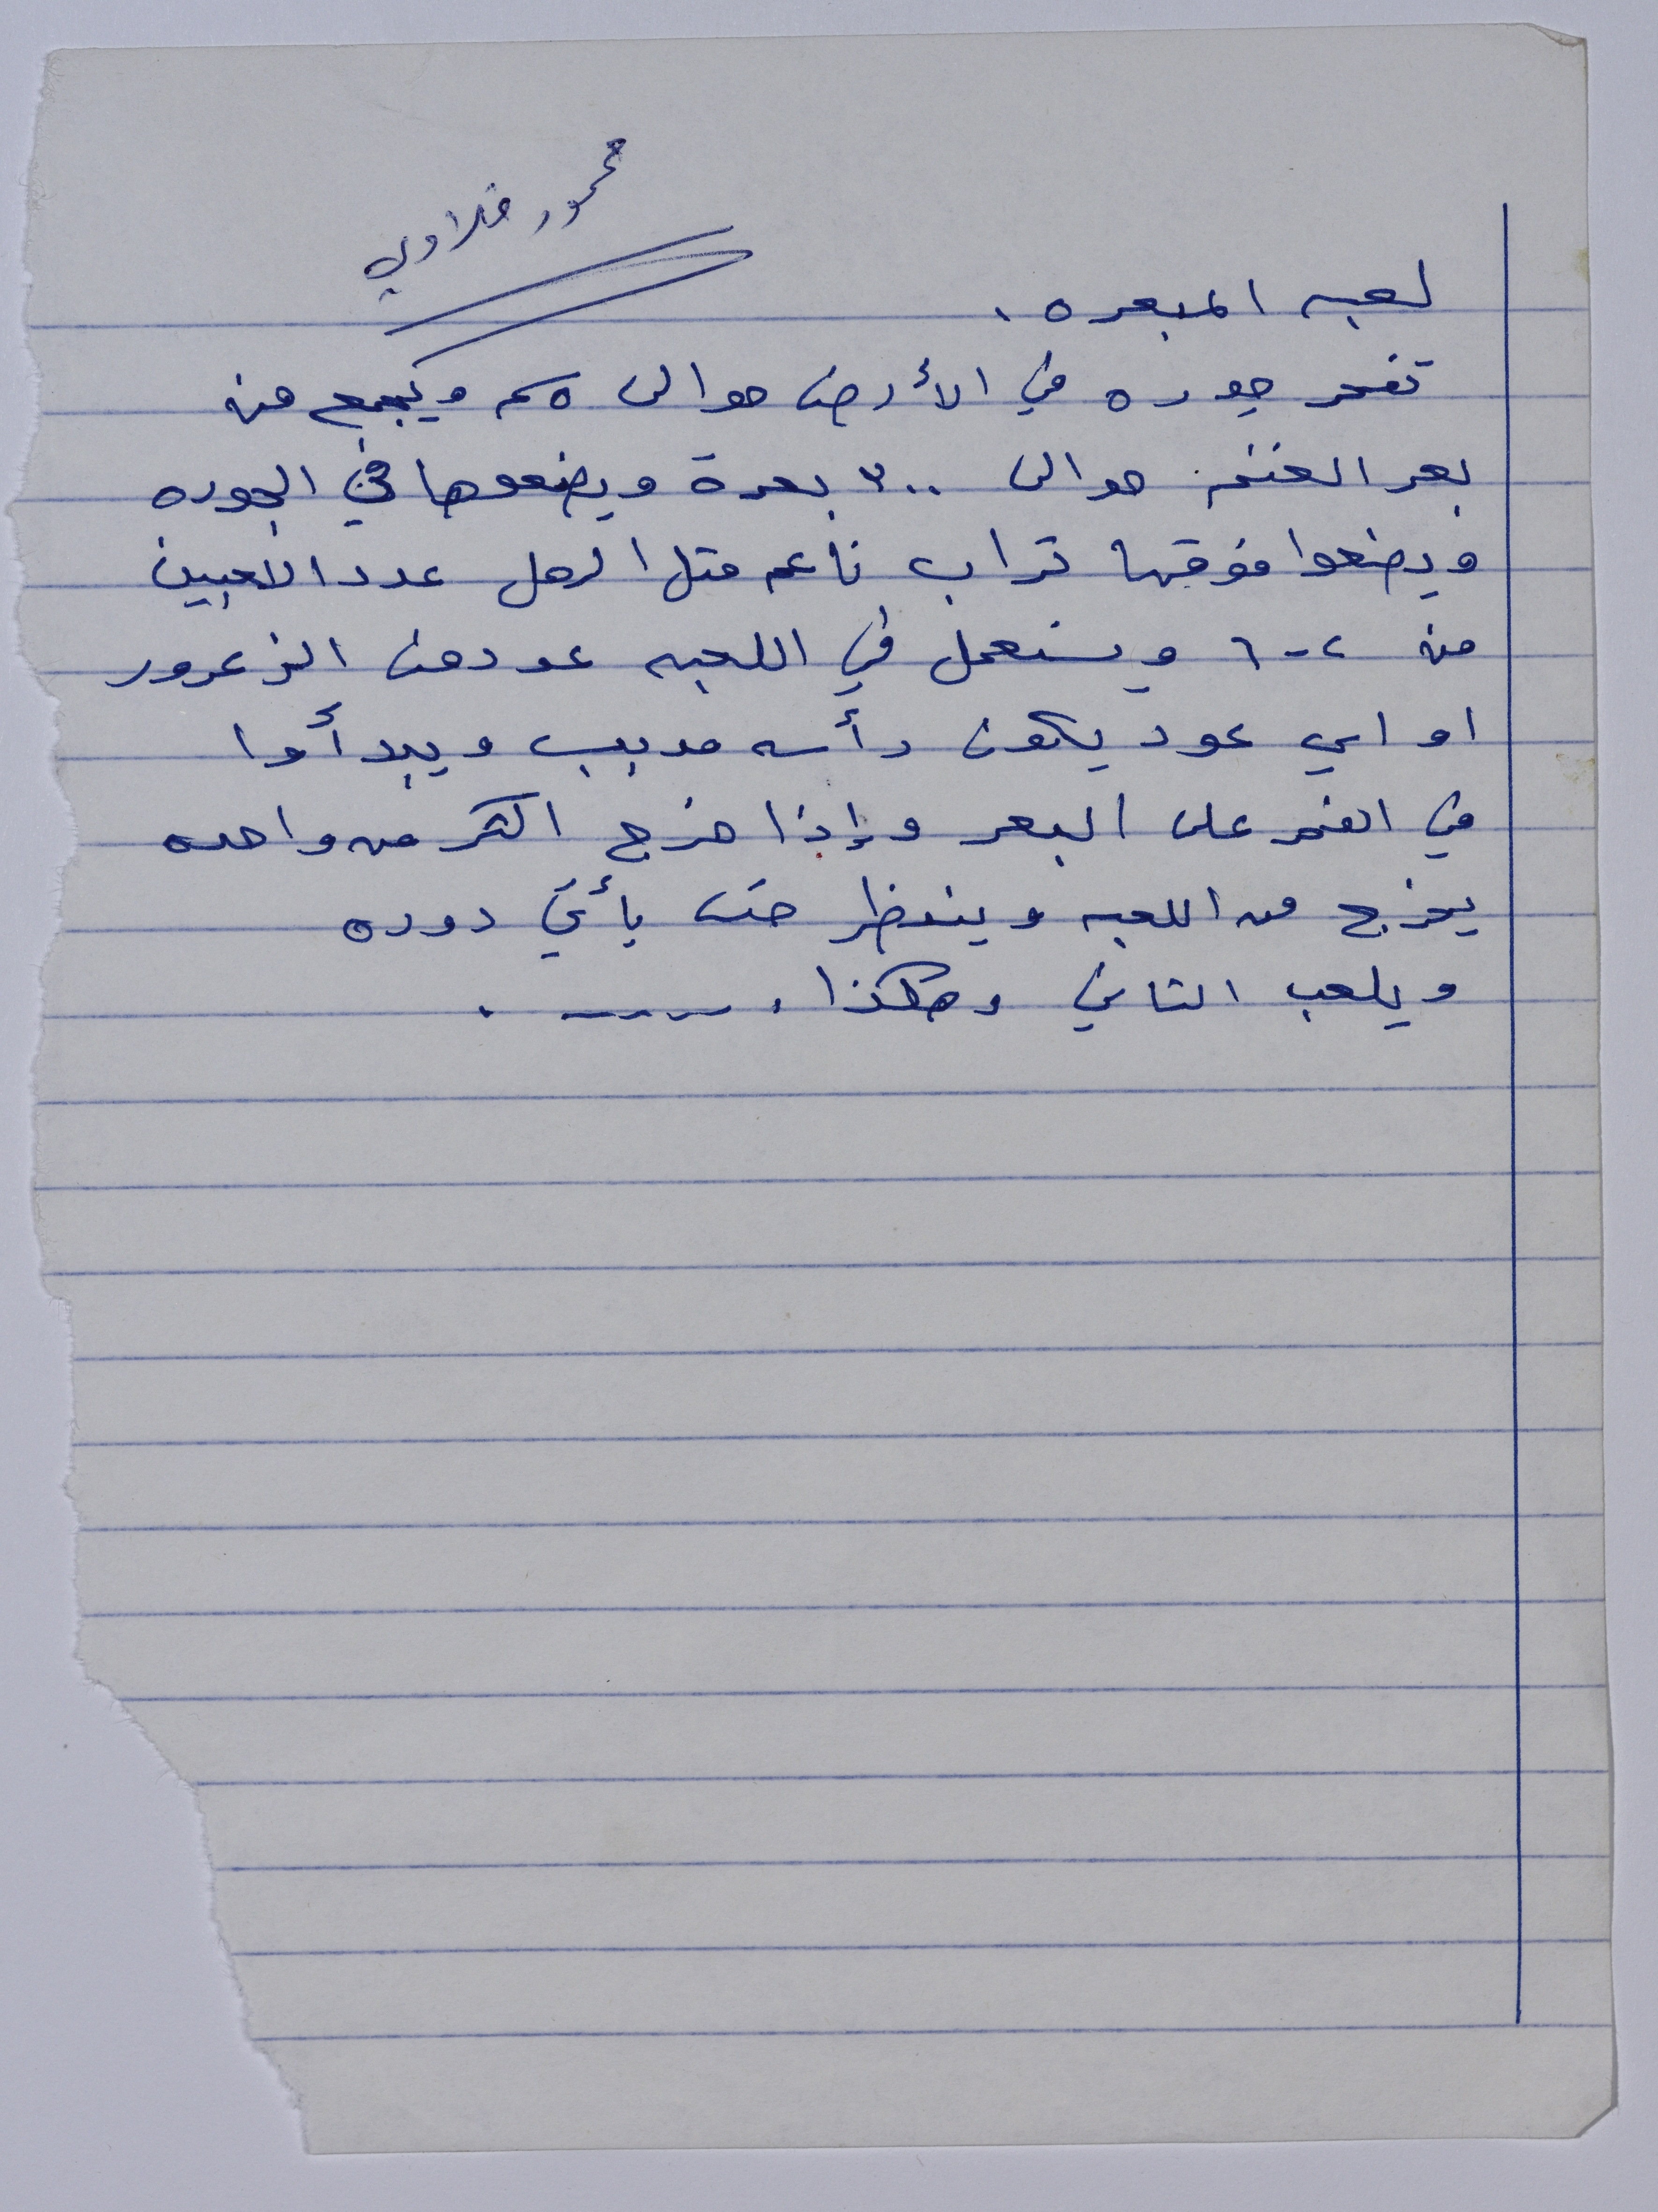 محمود فلاوي
لعبه المبعره .
تفحر جوره في الأرض حوالى ٥سم ويجمع من
بعر الغنم حوالى ٣٠٠ بعرة ويضعوها في الجوره
ويضعوا فوقها تراب ناعم متل الرمل عدد الاعبين
من ٢-٦ ويستعمل في اللعبه عود من الزعرور
او اي عود يكون رأسه مدبب ويبدأوا
في الغمر على البعر وإذا خرج اكثر من واحده
يخرج من اللعبه وينتظر حتى يأتي دوره
ويلعب التاني وهكذا . ـــ .